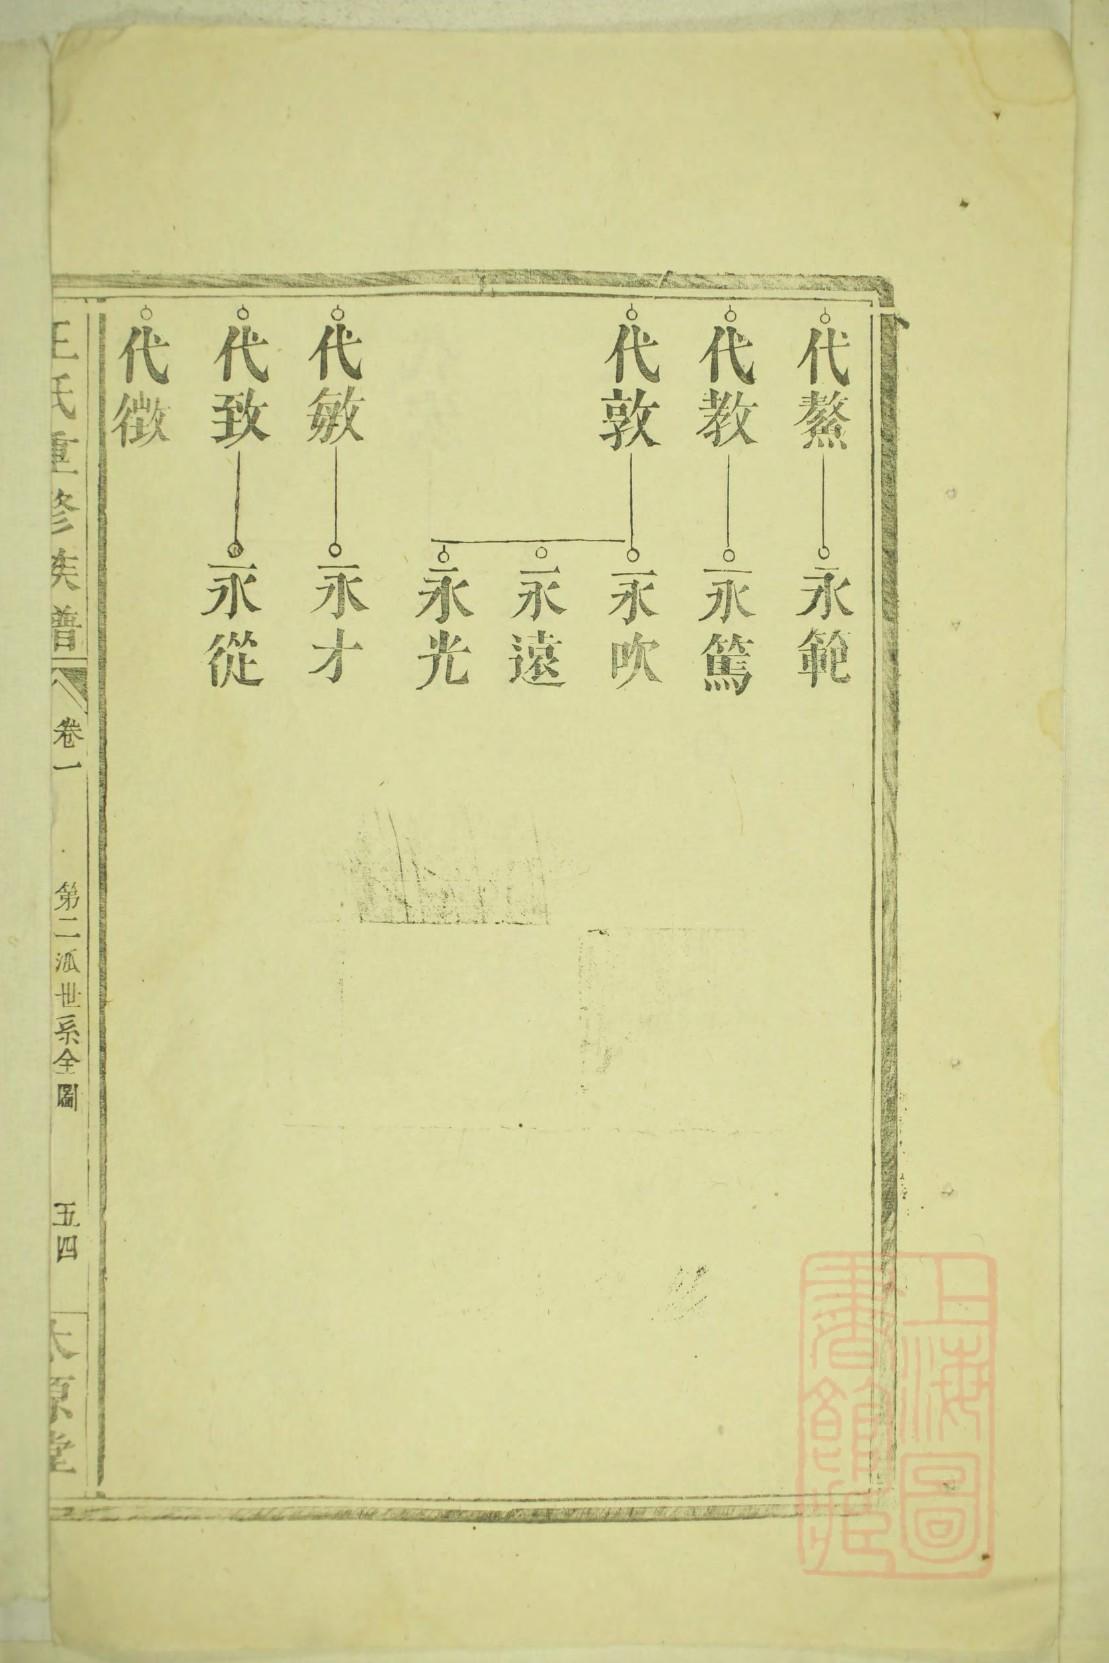 代鰲
永範
代教
永篤
代敦
永吹
永遠
永光
代敏
永才
代致
永從
代徵
王氏重修族譜
卷一
第二派世系全圖
五四
太原堂
上海圖
書館藏